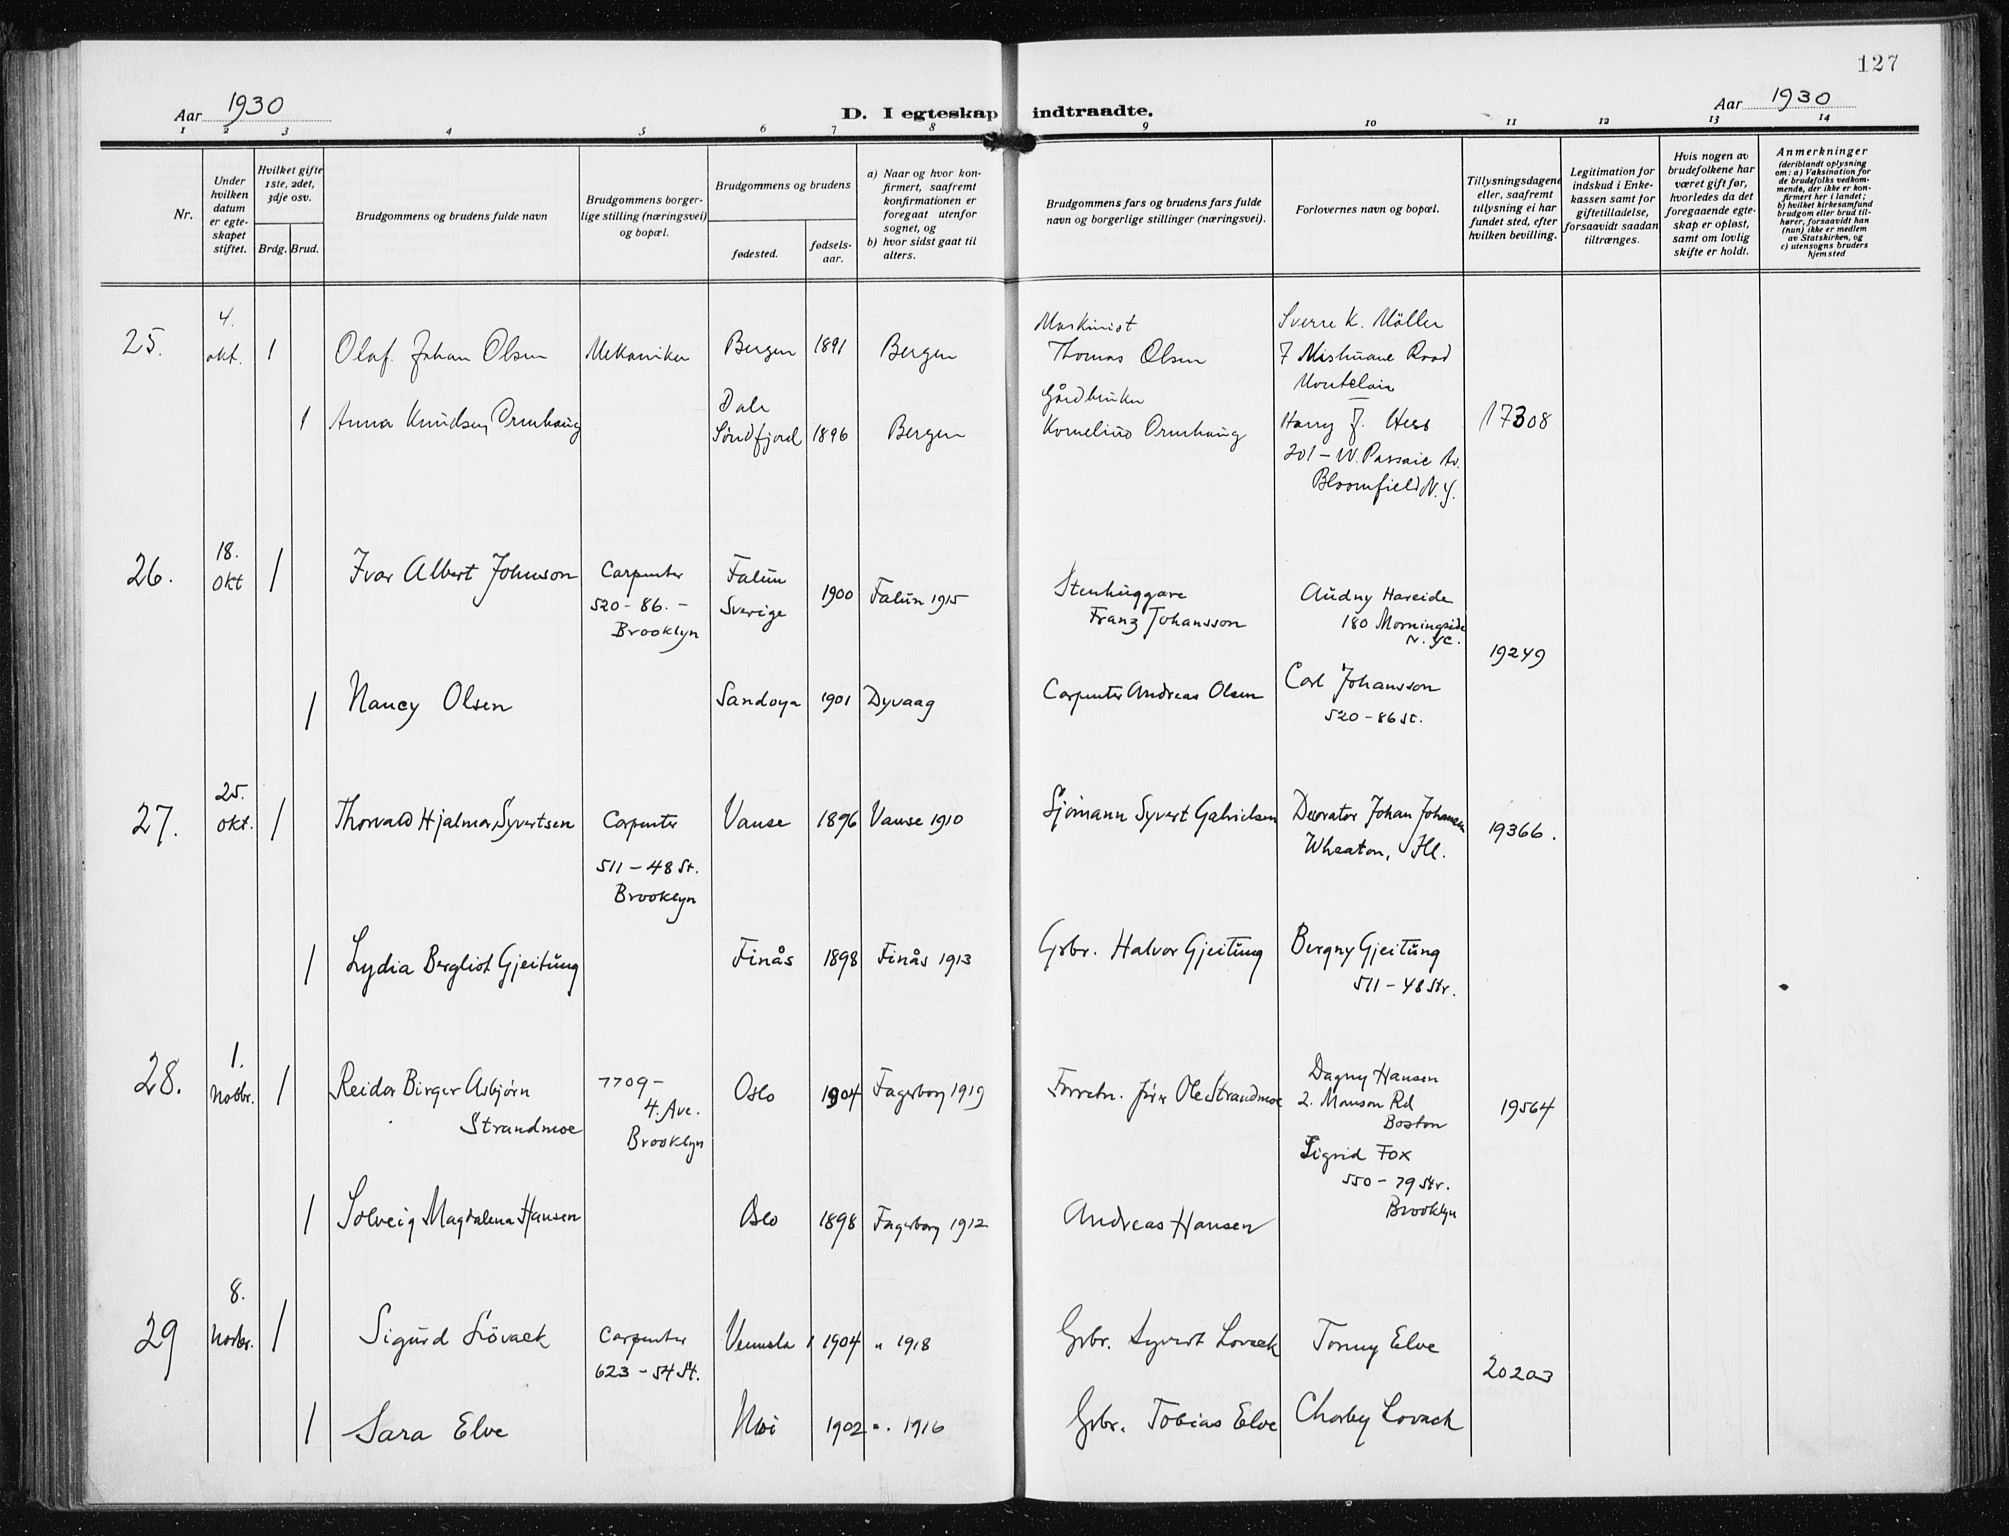 127
Aar 1930
D. I egteskap indtraadte.
Aar 1930
1 2 3 4 5 6 7 8 9 10 11 12 13 14
Nr.
Under
hvilken
datum
er egte-
skapet
stiftet.
Hvilket gifte
1ste, 2det,
3dje osv.
Brdg. Brud.
Brudgommens og brudens fulde navn
Brudgommens borger-
lige stilling (næringsvei)
og bopæl.
Brudgommens og brudens
fødested.
fødsels-
aar.
a) Naar og hvor kon-
firmert, saafremt
konfirmationen er
foregaat utenfor
sognet, og
b) hvor sidst gaat til
alters.
Brudgommens fars og brudens fars fulde
navn og borgerlige stillinger (næringsvei).
Forlovernes navn og bopæl.
Tillysningsdagene
eller, saafremt
tillysning ei har
fundet sted, efter
hvilken bevilling.
Legitimation for
indskud i Enke-
kassen samt for
giftetilladelse,
forsaavidt saadan
tiltrænges.
Hvis nogen av
brudefolkene har
været gift før,
hvorledes da det
foregaaende egte-
skap er opløst,
samt om lovlig
skifte er holdt.
Anmerkninger
(deriblandt oplysning
om: a) Vaksination for
de brudefolks vedkom-
mende, der ikke er kon-
firmert her i landet;
b) hvilket kirkesamfund
brudgom eller brud til-
hører, forsaavidt han
(hun) ikke er medlem
av Statskirken, og
c) utensogns bruders
hjemsted
25.
4.
okt.
1
Olaf Johan Olsen
Mekaniker
Bergen
1891
Bergen
Maskinist
Thomas Olsen
Sverre K. Möller
7 Road
Montclair
1
Anna Knudsen Ormhaug
Dale
Søndfjord
1896
Bergen
Gårdbruker
Kornelius Ormhaug
Harry J. Hess
201 - W. Passaic Av.
Bloomfield N. J.
17308
26.
18.
Okt
1
Ivar Albert Johnson
Carpenter
520 - 86. -
Brooklyn
Falun
Sverige
1900
Falun 1915
Stenhuggare
Franz Johansson
Audny Hareide
180 Morningside
N. Y.C.
19249
1
Nancy Olsen
Sandøya
1901
Dyvaag
Carpenter Andreas Olsen
Carl Johansson
520 - 86 St.
27.
25.
Okt.
1
Thorvald Hjalmar Syvertsen
Carpenter
511 - 48 St.
Brooklyn
Vanse
1896
Vanse 1910
Sjömann Syvert Gabrielsen
Decorator Johan Johansen
Wheaton, Ill.
19366.
1
Lydia Bergliot Gjeitung
Finås
1898
Finås 1913
Grbr. Halvor Gjeitung
Bergny Gjeitung
511 - 48 Str.
28.
1.
Novbr.
1
Reidar Birger Asbjørn
Strandmoe
7709 -
4. Ave.
Brooklyn
Oslo
1904
Fagerborg 1919
Ole Strandmoe
Dagny Hansen
2. Monson Rd
Boston
Sigrid Fox
550 - 79 Str.
Brooklyn
19564
1
Solveig Magdalena Hansen
Oslo
1898
Fagerborg 1912
Andreas Hansen
29
8.
Novbr.
1
Sigurd Lövaek
Carpenter
623 - 54 St.
Vennsla
1904
" 1918
Grbr. Syvert Lovaek
Tonny Elve
20203
1
Sara Elve
Moi
1902
". 1916
Grbr. Tobias Elve
Lovaek